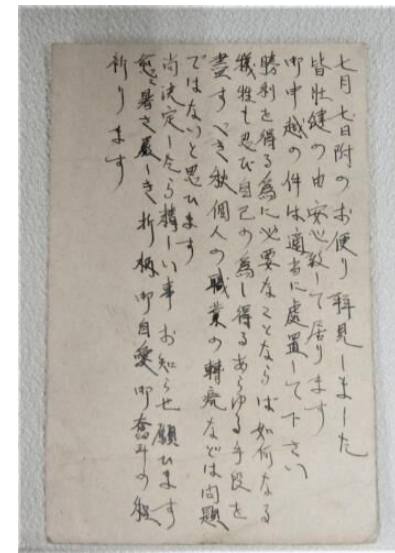 七月七日附のお便り拝見しました
皆壮健の由安心致して居ります
御申越の件は適当に處置して下さい
勝利を得る為に必要なことならば如何なる
犠牲も忍び自己の為し得るあらゆる手段を
盡すべき秋個人の職業の轉廃などは問題
ではないと思ひます
尚決定したら精しい事お知らせ願ひます
愈々暑さ厳しき折柄御自愛御奮斗の程
祈ります